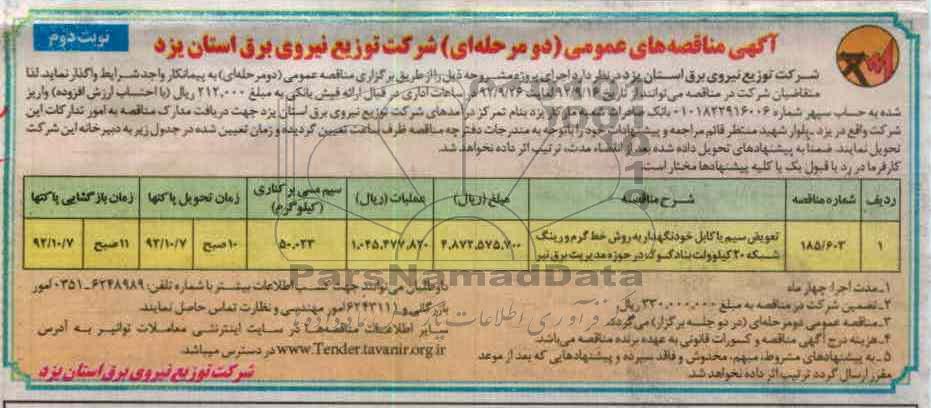 نوبت دوم
آگهی مناقصه‌های عمومی (دو مرحله‌ای) شرکت توزیع نیروی برق استان یزد
شرکت توزیع نیروی برق استان یزد در نظر دارد اجرای پروژه مشروحه ذیل را از طریق برگزاری مناقصه عمومی (دو مرحله‌ای) به پیمانکار واجد شرایط واگذار نماید. لذا
متقاضیان شرکت در مناقصه می‌توانند از تاریخ ۹۲/۹/۱۶ لغایت ۹۲/۹/۲۶ در ساعات اداری در قبال ارائه فیش بانکی به مبلغ ۲۱۲,۰۰۰ ریال (با احتساب ارزش افزوده) واریز
شده به حساب سپهر شماره ۰۱۰۱۸۲۲۹۱۶۰۰۶ بانک صادرات یزد بنام تمرکز درآمدهای شرکت توزیع نیروی برق استان یزد جهت دریافت مدارک مناقصه به امور تدارکات این
شرکت واقع در یزد ـ بلوار شهید منتظر قائم مراجعه و پیشنهادات خود را با توجه به مندرجات دفترچه مناقصه ظرف ساعت تعیین گردیده و زمان تعیین شده در جدول زیر به دبیرخانه این شرکت
تحویل نمایند. ضمنا به پیشنهادهای تحویل داده شده بعد از انقضاء مدت، ترتیب اثر داده نخواهد شد.
کارفرما در رد یا قبول یک یا کلیه پیشنهادها مختار است.
ردیف شماره مناقصه شرح مناقصه مبلغ (ریال) عملیات (ریال) سیم مسی برکناری (کیلوگرم) زمان تحویل پاکتها زمان بازگشایی پاکتها
۱ ۱۸۵/۶۰۳ تعویض سیم با کابل خودنگهدار به روش خط گرم و رینگ ۴,۸۷۲,۵۷۵,۷۰۰ ۱,۰۴۵,۴۷۷,۸۲۰ ۵۰,۰۲۳ ۱۰صبح ۹۲/۱۰/۷ ۱۱صبح ۹۲/۱۰/۷
شبکه ۲۰ کیلوولت بنادکوک در حوزه مدیریت برق تیر
۱ـ مدت اجرا: چهار ماه
۲ـ تضمین شرکت در مناقصه به مبلغ ۳۳۰,۰۰۰,۰۰۰ ریال
۳ـ مناقصه عمومی دو مرحله‌ای (در دو جلسه برگزار) می‌گردد.
۴ـ هزینه درج آگهی مناقصه و کسورات قانونی به عهده برنده مناقصه می‌باشد.
۵ـ به پیشنهادهای مشروط، مبهم، مخدوش و فاقد سپرده و پیشنهادهایی که بعد از موعد
مقرر ارسال گردد ترتیب اثر داده نخواهد شد.
داوطلبین می‌توانند جهت کسب اطلاعات بیشتر با شماره تلفن: ۶۲۴۸۹۸۹ـ۰۳۵۱ امور
بازرگانی و ۶۲۴۳۱۱۱ امور مهندسی و نظارت تماس حاصل نمایند.
سایر اطلاعات مناقصه‌ها در سایت اینترنتی معاملات توانیر به آدرس
www.Tender.tavanir.org.ir در دسترس میباشد.
شرکت توزیع نیروی برق استان یزد
ParsNamadData